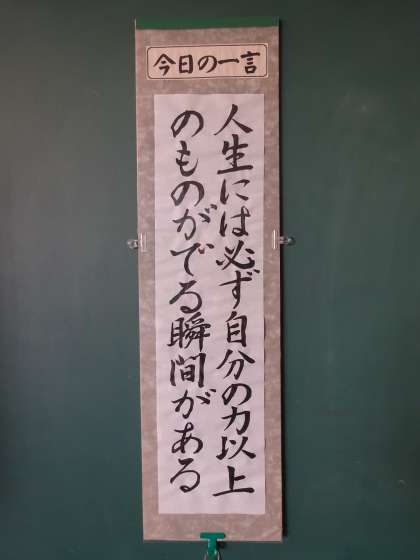 今日の一言
人生には必ず自分の力以上
のものがでる瞬間がある